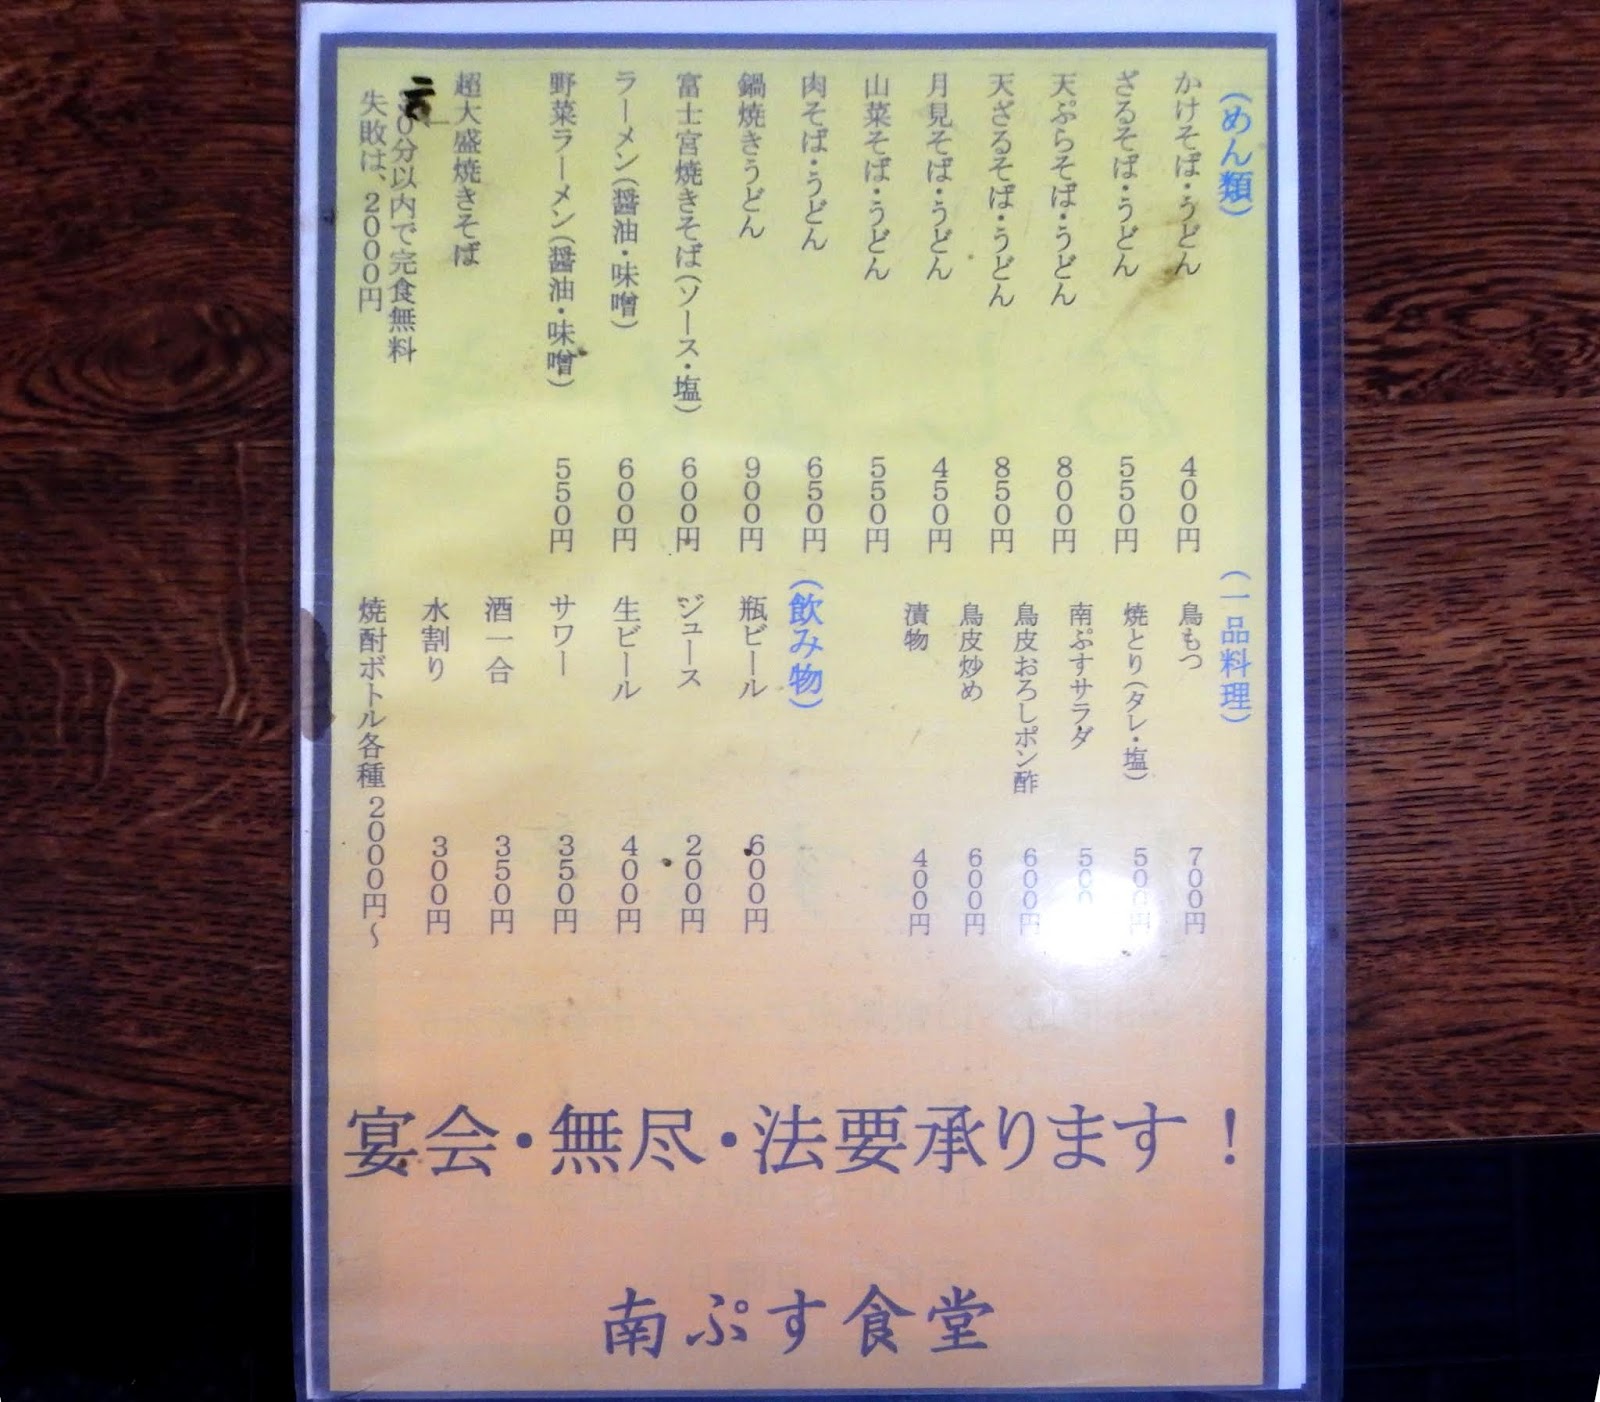 (めん類)
かけそば・うどん 400円
ざるそば・うどん 550円
天ぷらそば・うどん 800円
天ざるそば・うどん 850円
月見そば・うどん 450円
山菜そば・うどん 550円
肉そば・うどん 650円
鍋焼きうどん 900円
富士宮焼きそば(ソース・塩) 600円
ラーメン(醤油・味噌) 600円
野菜ラーメン(醤油・味噌) 550円
超大盛焼きそば
0分以内で完食無料
失敗は、2000円
(一品料理)
鳥もつ 700円
焼とり(タレ・塩) 500円
南ぷすサラダ 500
鳥皮おろしポン酢 600円
鳥皮炒め 600円
漬物 400円
(飲み物)
瓶ビール 600円
ジュース 200円
生ビール 400円
サワー 350円
酒一合 350円
水割り 300円
焼酎ボトル各種 2000円～
宴会・無尽・法要承ります！
南ぷす食堂